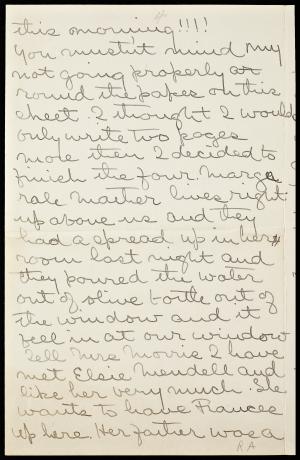 this morning!!!!
You mustn't mind my
not going properly
round the pages on this
sheet. I thought I would
only write two pages
more then I decided to
finish the four. Marga
rale Mather lives right
up above us and they
had a spread up in her
room last night and
they poured the water
out of olive bottle out of
the window and it
fell in at our window
Tell Mrs Morris I have
met Elsie Mendell and
like her very much. She
wants to have Frances
up here. Her father was a
R A